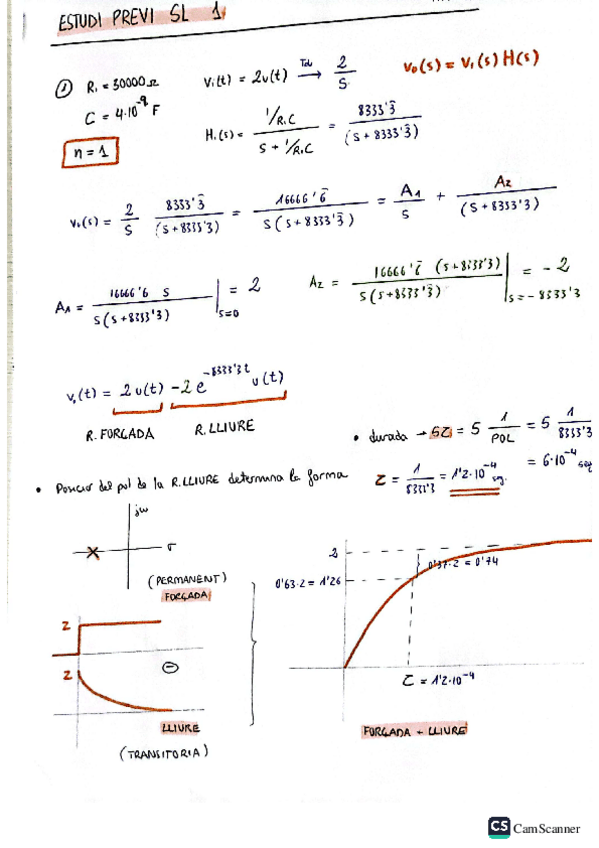 ESTUDI PREVI SL 1
① R₁ = 30000 Ω
C = 4·10⁻⁹ F
n = 1
Vi(t) = 2u(t) → 2/S
V₀(s) = V₁(s) H(s)
H₁(s) = (1/R₁C)/(S + 1/R₁C) = 8333'3̄/(S + 8333'3̄)
V₀(s) = 2/S 8333'3̄/(S + 8333'3) = 16666'6̄/(S(S + 8333'3̄)) = A₁/S + A₂/(S + 8333'3)
A₁ = 16666'6 S/(S(S+8333'3)) |S=0 = 2
A₂ = 16666'6̄ (S+8333'3)/(S(S+8333'3̄)) |S=-8333'3 = -2
v₀(t) = 2u(t) -2e^-8333'3t u(t)
R. FORÇADA
R. LLIURE
• durada → 5τ = 5 1/POL = 5 1/8333'3
= 6·10⁻⁴ seg
• Posició del pol de la R.LLIURE determina la forma
τ = 1/8333'3 = 1'2·10⁻⁴ sg.
jw
σ
(PERMANENT)
FORÇADA
2
2
LLIURE
(TRANSITORIA)
2
0'37·2 = 0'74
0'63·2 = 1'26
τ = 1'2·10⁻⁴
FORÇADA + LLIURE
CS CamScanner